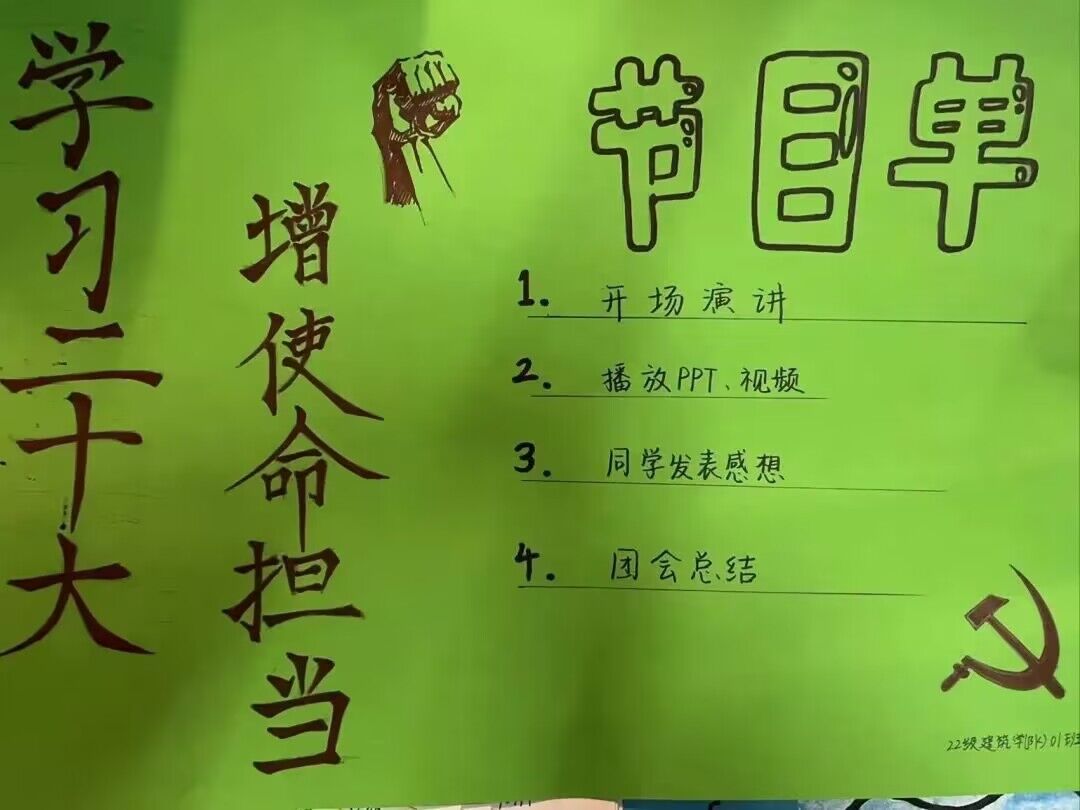 学习二十大
增使命担当
节目单
1. 开场演讲
2. 播放PPT、视频
3. 同学发表感想
4. 团会总结
22级建筑学(BK)01班